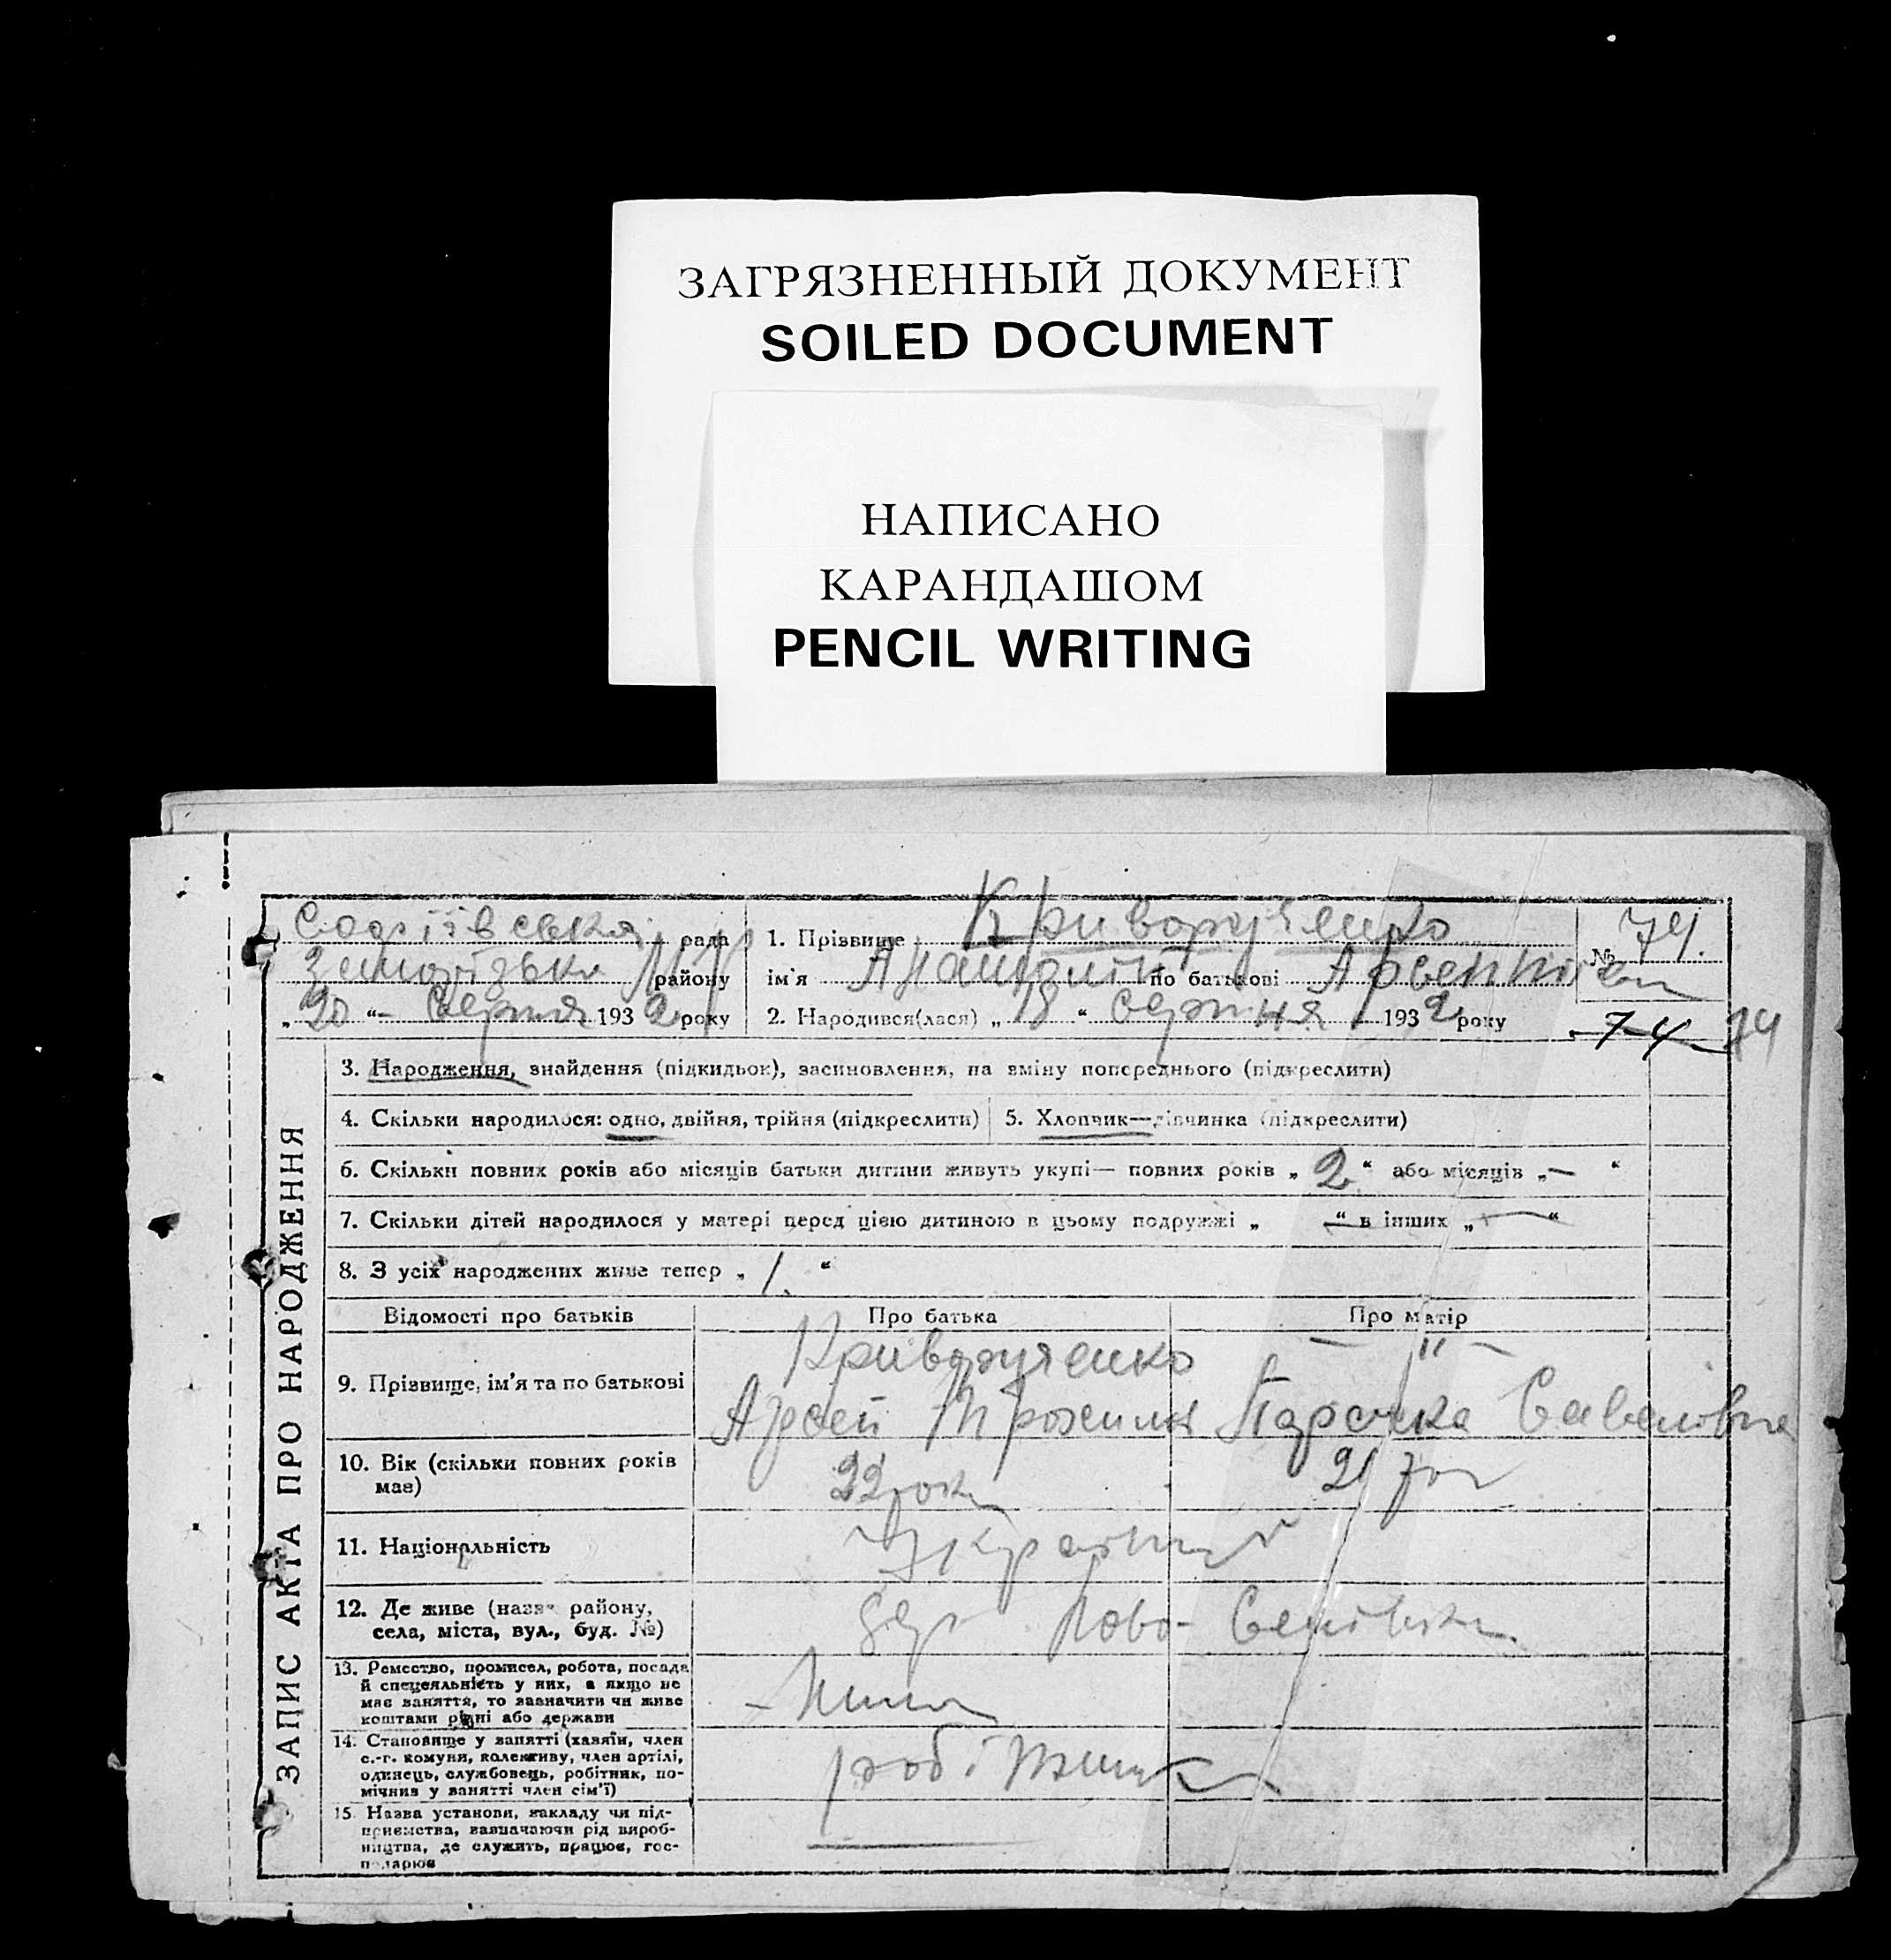 ЗАГРЯЗНЕННЫЙ ДОКУМЕНТ
SOILED DOCUMENT
НАПИСАНО
КАРАНДАШОМ
PENCIL WRITING
Софіївська рада
району
„20“ Серпня 1932 року
1. Прізвище Криворученко
ім'я Анатолій по батькові
2. Народився(лася) „18“ Серпня 1932 року
№ 74.
74 74
ЗАПИС АКТА ПРО НАРОДЖЕННЯ
3. Народження, знайдення (підкидьок), засиновлення, на зміну попереднього (підкреслити)
4. Скільки народилося: одно, двійня, трійня (підкреслити)
5. Хлопчик—дівчинка (підкреслити)
6. Скільки повних років або місяців батьки дитини живуть укупі— повних років „2“ або місяців „—“
7. Скільки дітей народилося у матері перед цією дитиною в цьому подружжі „—“ в інших „—“
8. З усіх народжених живе тепер „1.“
Відомості про батьків
Про батька
Про матір
9. Прізвище, ім'я та по батькові
Криворученко
— " —
Арсей Параска
10. Вік (скільки повних років має)
22 роки
21
11. Національність
12. Де живе (назва району,
села, міста, вул., буд. №)
13. Ремество, промисел, робота, посада
й спецеяльність у них, а якщо не
має заняття, то зазначити чи живе
коштами рідні або держави
14. Становище у занятті (хазяїн, член
с.-г. комуни, колективу, член артілі,
одинець, службовець, робітник, по-
мічник у занятті член сім'ї)
15. Назва установи, закладу чи під-
приємства, зазначаючи рід вироб-
ництва, де служить, працює, гос-
подарює